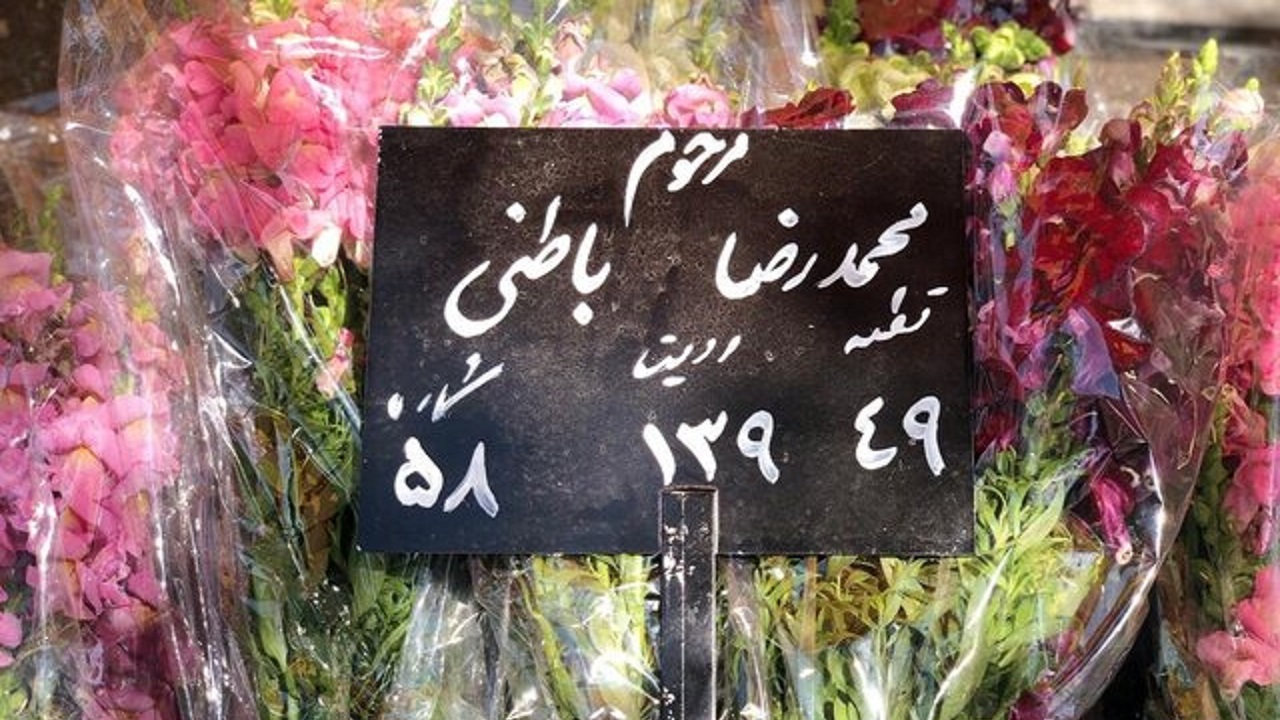 مرحوم
محمدرضا باطنی
قطعه ردیف شماره
٤٩ ١٣٩ ۵٨